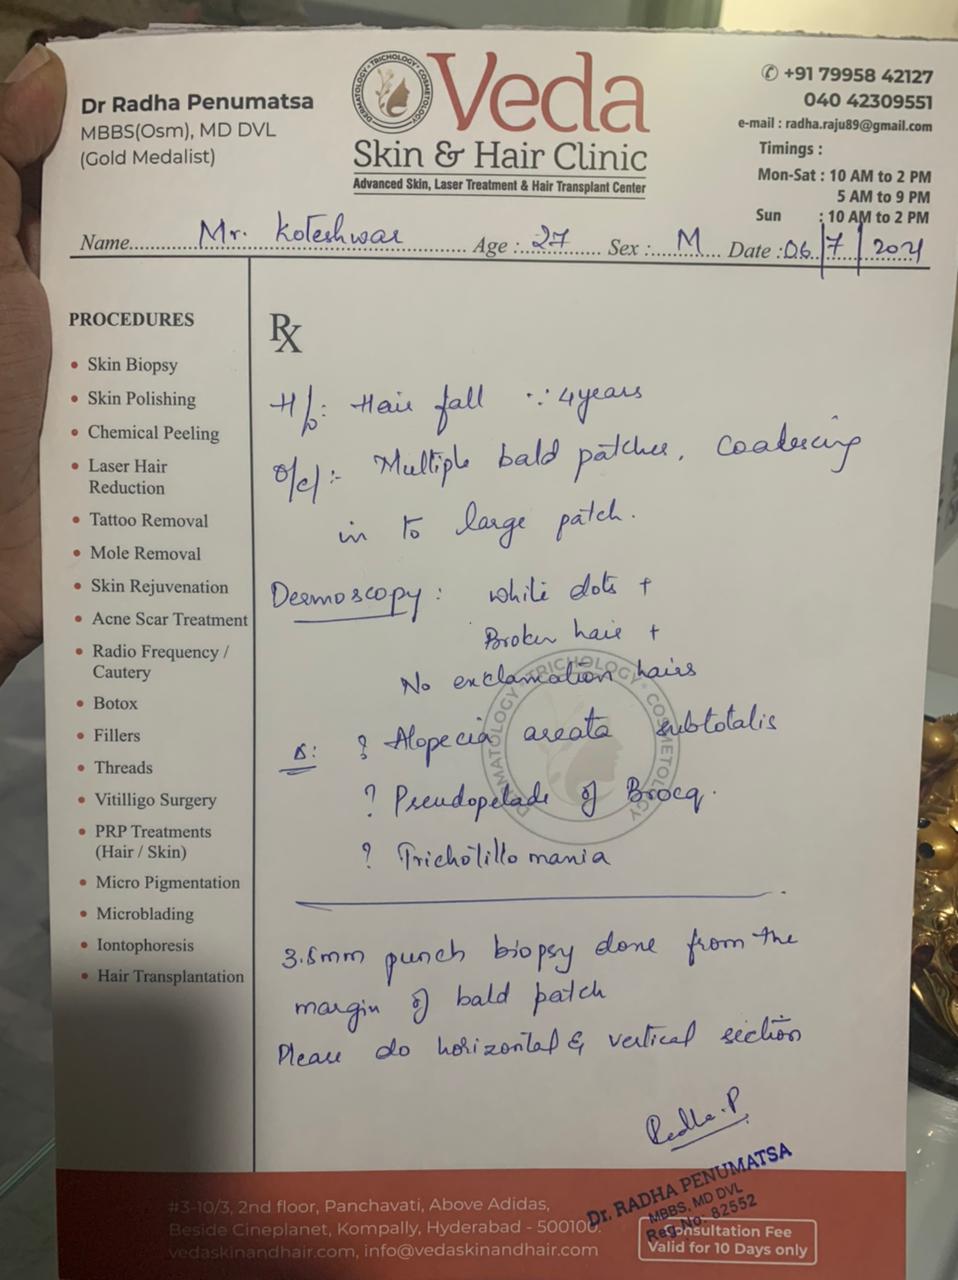 Dr Radha Penumatsa
MBBS(Osm), MD DVL
(Gold Medalist)
DERMATOLOGY • TRICHOLOGY • COSMETOLOGY
Veda
Skin & Hair Clinic
Advanced Skin, Laser Treatment & Hair Transplant Center
+91 79958 42127
040 42309551
e-mail : radha.raju89@gmail.com
Timings :
Mon-Sat : 10 AM to 2 PM
5 AM to 9 PM
Sun : 10 AM to 2 PM
Name Mr. Koteshwar Age : 27 Sex : M Date : 06/7/2021
PROCEDURES
• Skin Biopsy
• Skin Polishing
• Chemical Peeling
• Laser Hair
Reduction
• Tattoo Removal
• Mole Removal
• Skin Rejuvenation
• Acne Scar Treatment
• Radio Frequency /
Cautery
• Botox
• Fillers
• Threads
• Vitilligo Surgery
• PRP Treatments
(Hair / Skin)
• Micro Pigmentation
• Microblading
• Iontophoresis
• Hair Transplantation
Rx
H/o: Hair fall ∵ 4 years
O/e/:- Multiple bald patches, coalescing
in to large patch.
Dermoscopy: white dots +
Broken hair +
No exclamation hairs
DERMATOLOGY • TRICHOLOGY • COSMETOLOGY
Δ: ? Alopecia areata subtotalis
? Pseudopelade of Brocq.
? Tricholillo mania
3.5mm punch biopsy done from the
margin of bald patch
Please do horizontal & vertical section
Radha.P
Dr. RADHA PENUMATSA
MBBS, MD DVL
Reg.No: 82552
#3-10/3, 2nd floor, Panchavati, Above Adidas,
Beside Cineplanet, Kompally, Hyderabad - 500100.
vedaskinandhair.com, info@vedaskinandhair.com
Consultation Fee
Valid for 10 Days only